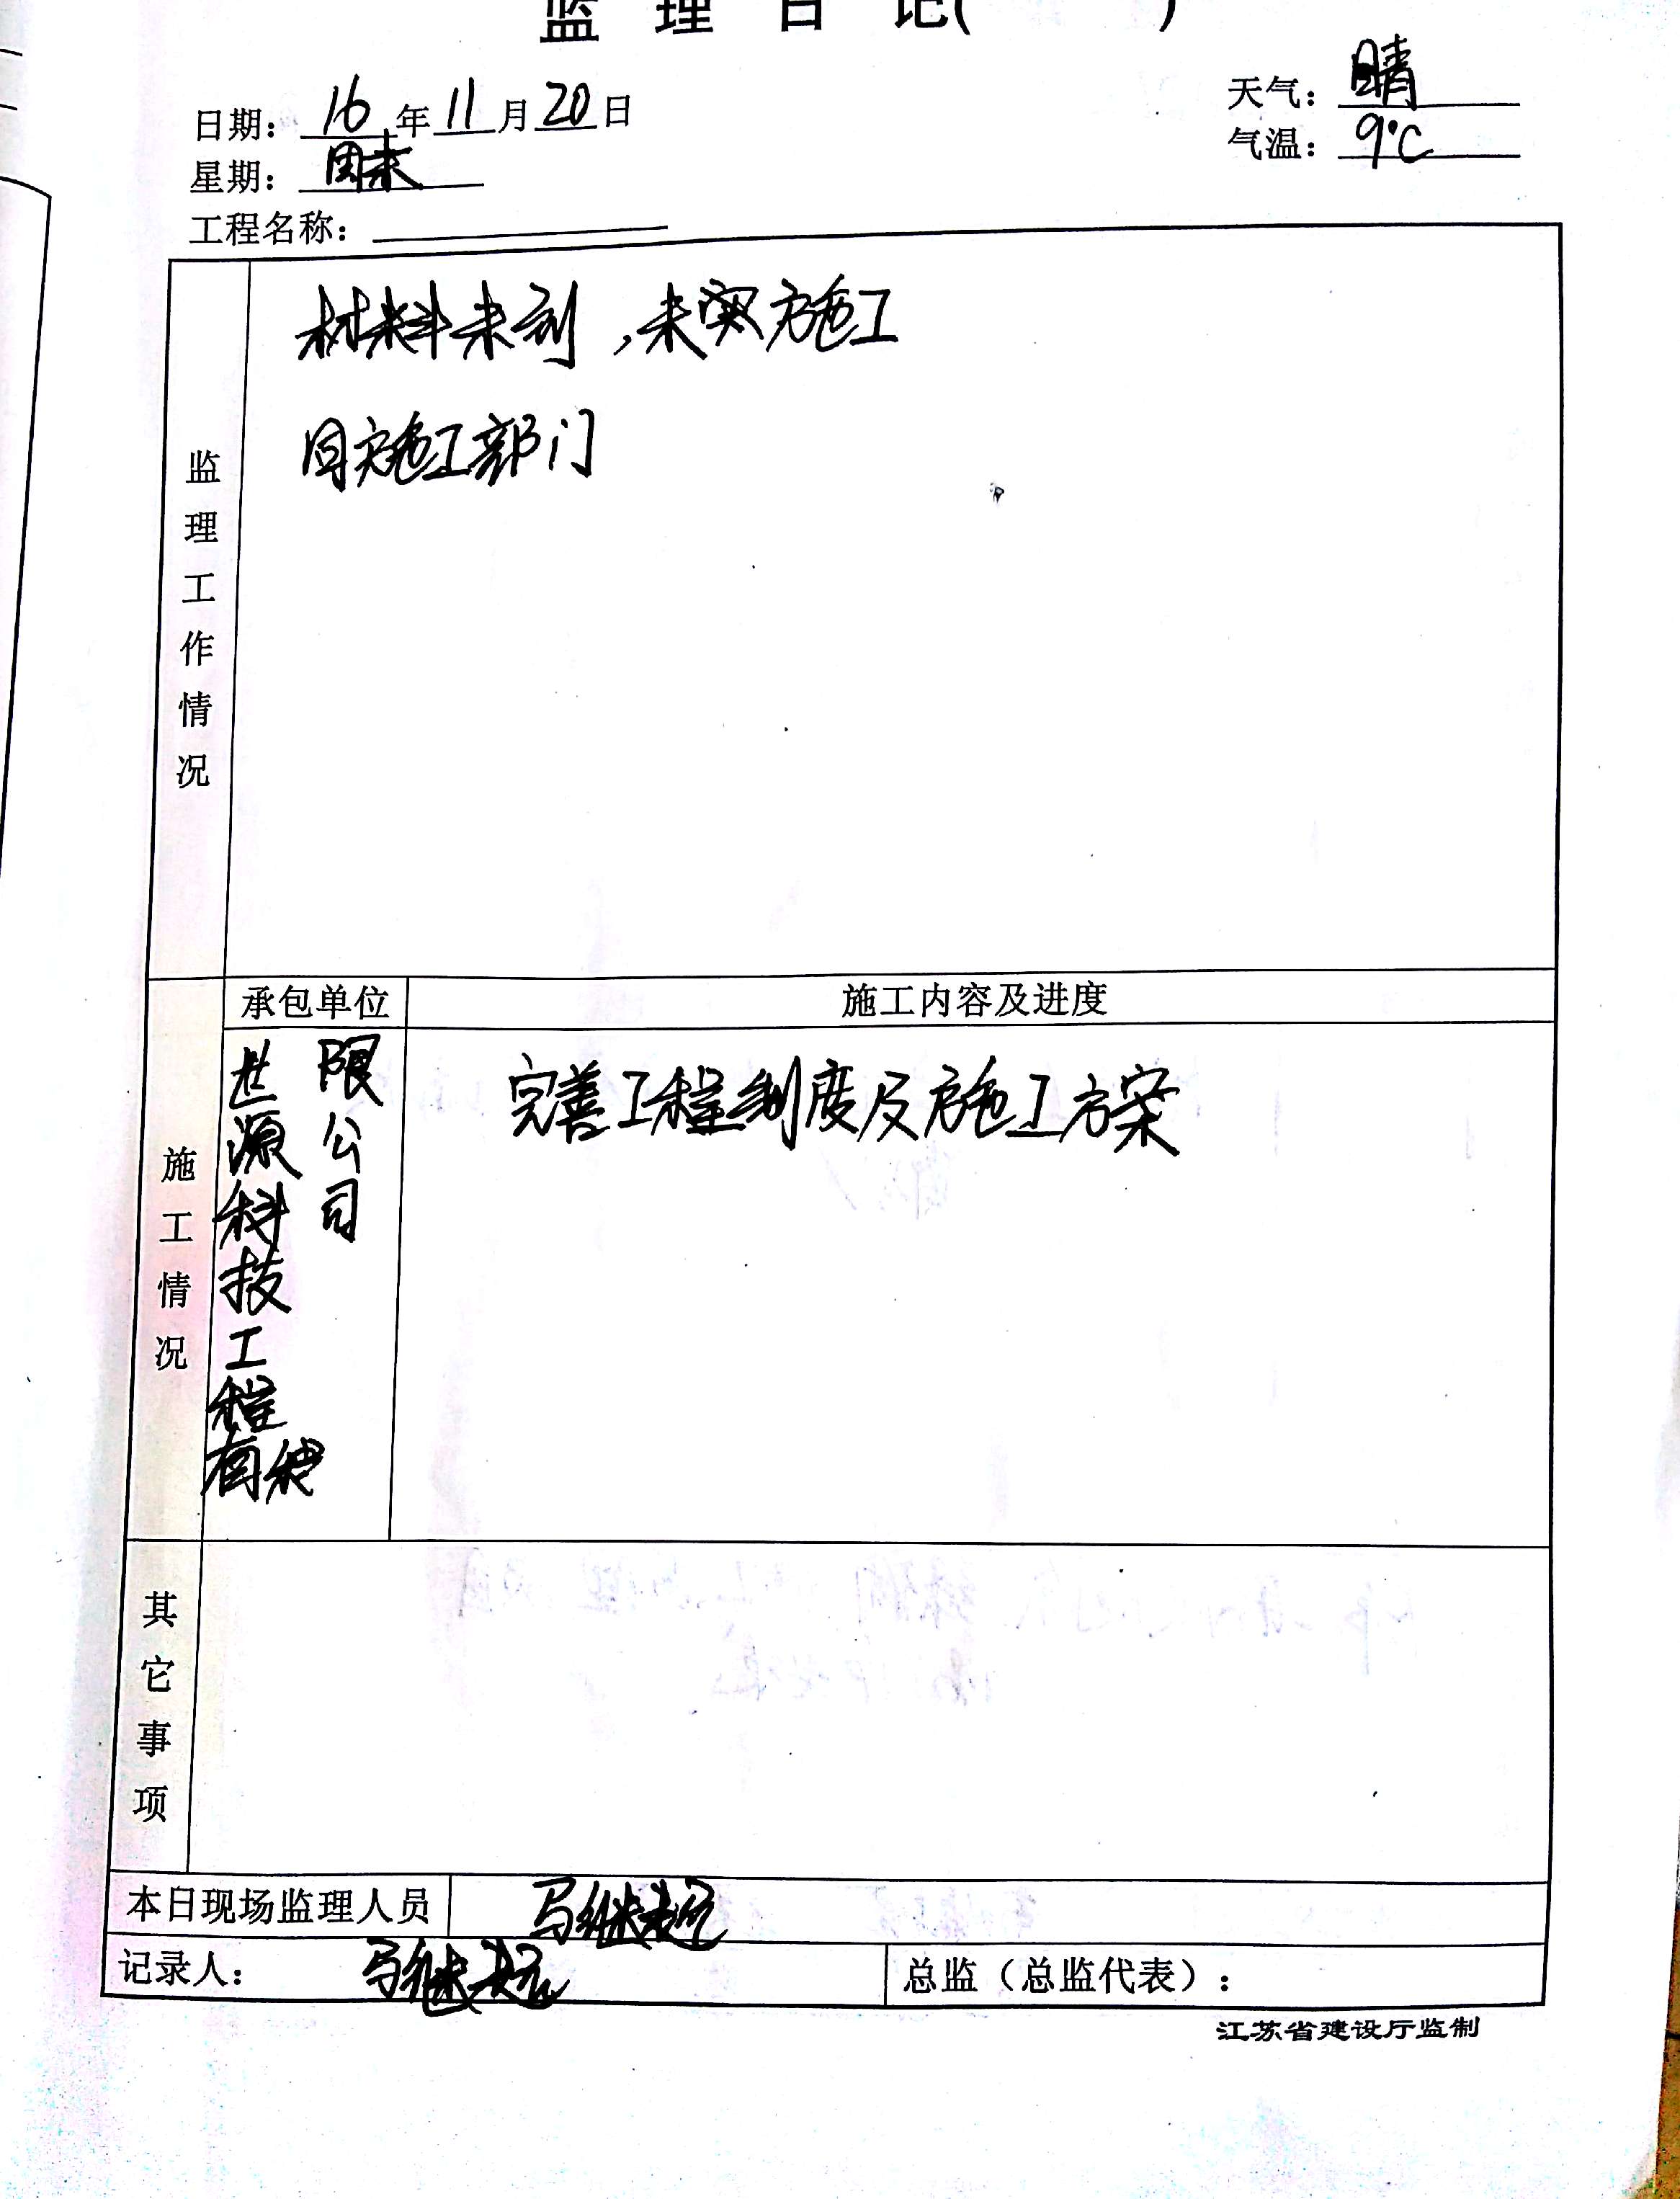 监 理 日 记( )
日期: 16 年 11 月 20 日
天气: 晴
星期: 周末
气温: 9℃
工程名称:
监理工作情况
材料未到,未实施工
同施工部门
施工情况
承包单位
施工内容及进度
世源科技工程有限公司
完善工程制度及施工方案
其它事项
本日现场监理人员 马继超
记录人: 马继超
总监(总监代表):
江苏省建设厅监制